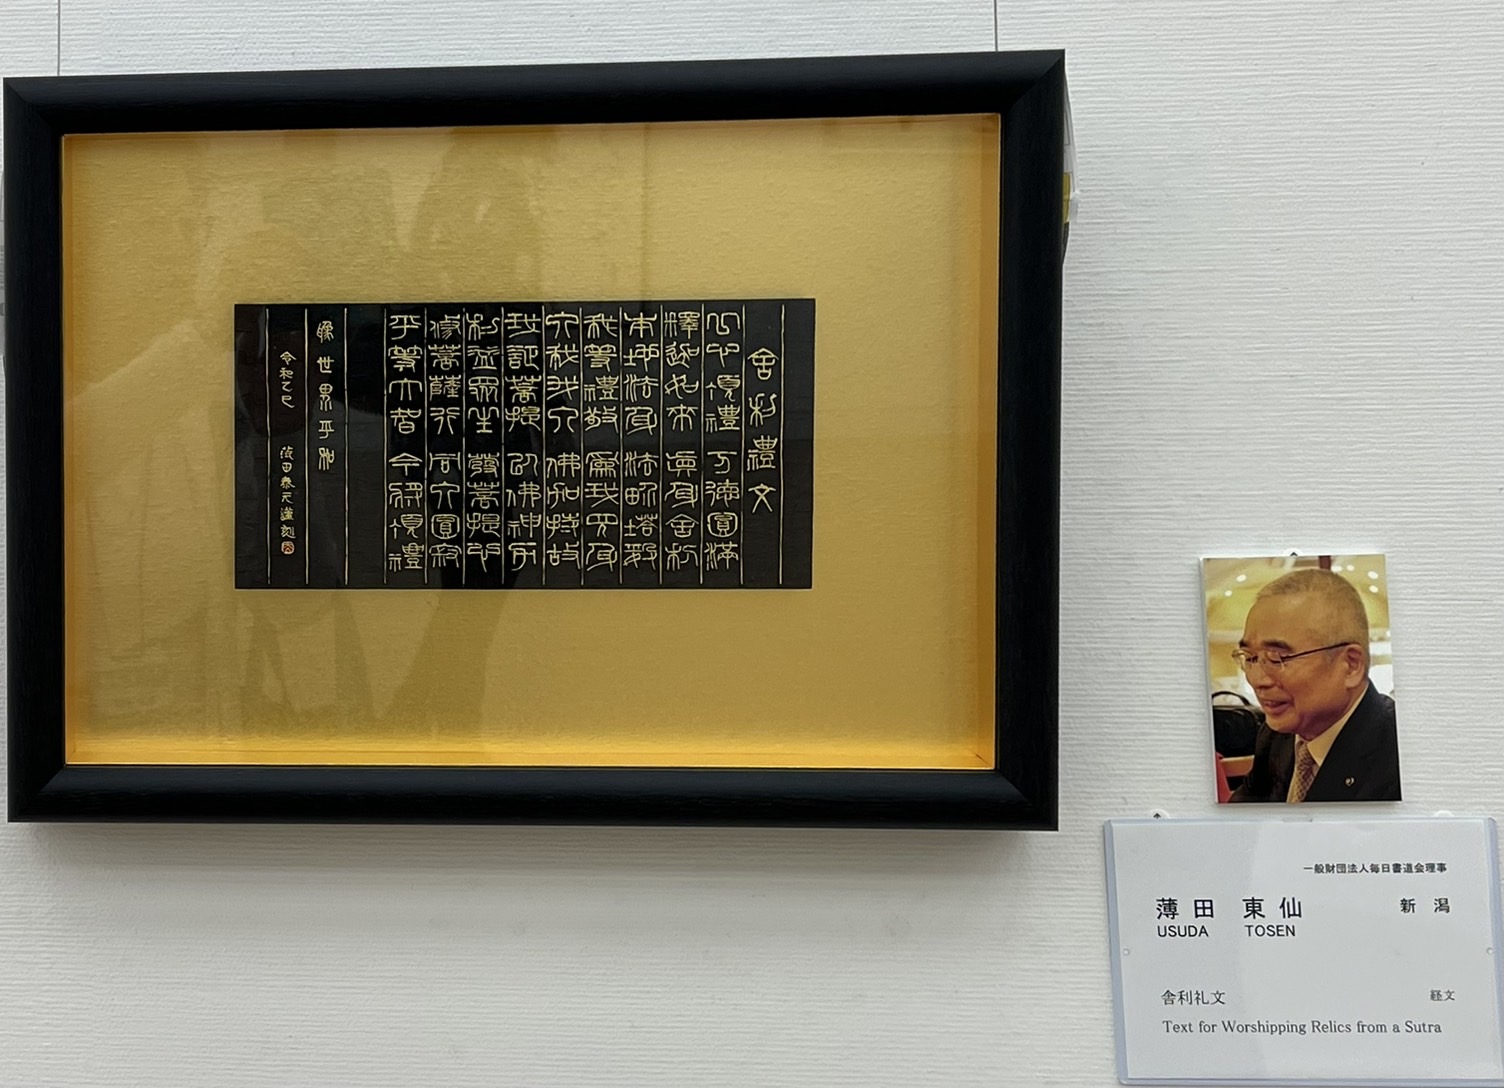 舍利禮文
一心頂禮 万德圓滿
釋迦如來 眞身舍利
本地法身 法界塔婆
我等禮敬 爲我現身
入我我入 佛加持故
我証菩提 以佛神力
利益衆生 發菩提心
修菩薩行 同入圓寂
平等大智 今將頂禮
願世界平和
令和乙巳 薄田 謹刻
一般財団法人毎日書道会理事
薄田 東仙 新潟
USUDA TOSEN
舎利礼文 経文
Text for Worshipping Relics from a Sutra